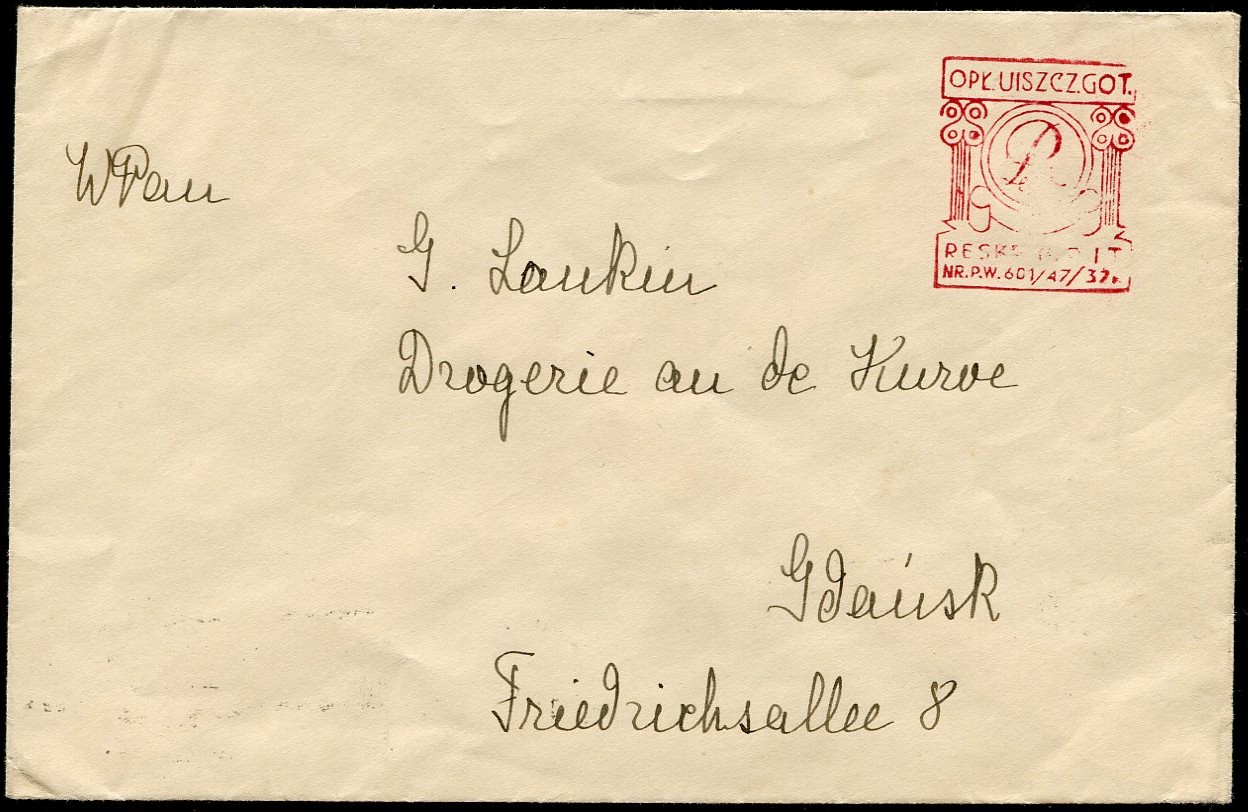 OPŁ.UISZCZ.GOT.
R
NR.P.W.601/47/37r.
WPan
G. Lankin
Drogerie an de Kurve
Gdańsk
Friedrichsallee 8